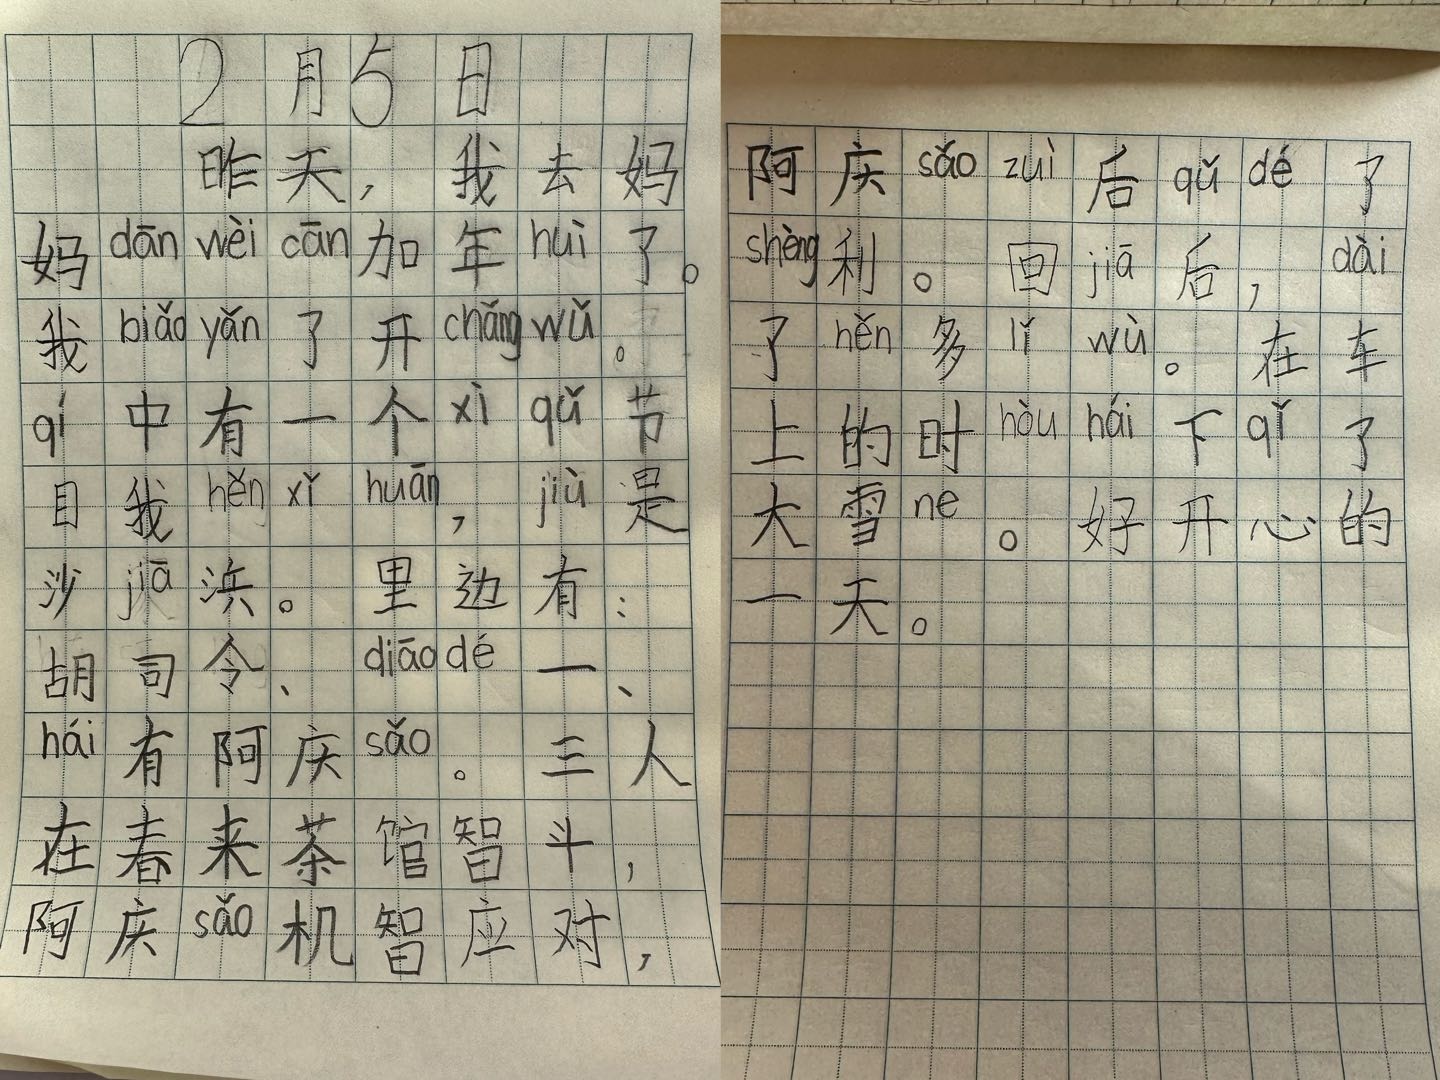 2月5日
昨天，我去妈
妈dān wèi cān加年huì了。
我biǎo yǎn了开chǎng wǔ。
qí中有一个xì qǔ节
目我hěn xǐ huān，jiù是
沙jiā浜。里边有：
胡司令、diāo dé一、
hái有阿庆sǎo。三人
在春来茶馆智斗，
阿庆sǎo机智应对，
阿庆sǎo zuì后qǔ dé了
shèng利。回jiā后，dài
了hěn多lǐ wù。在车
上的时hòu hái下qǐ了
大雪ne。好开心的
一天。